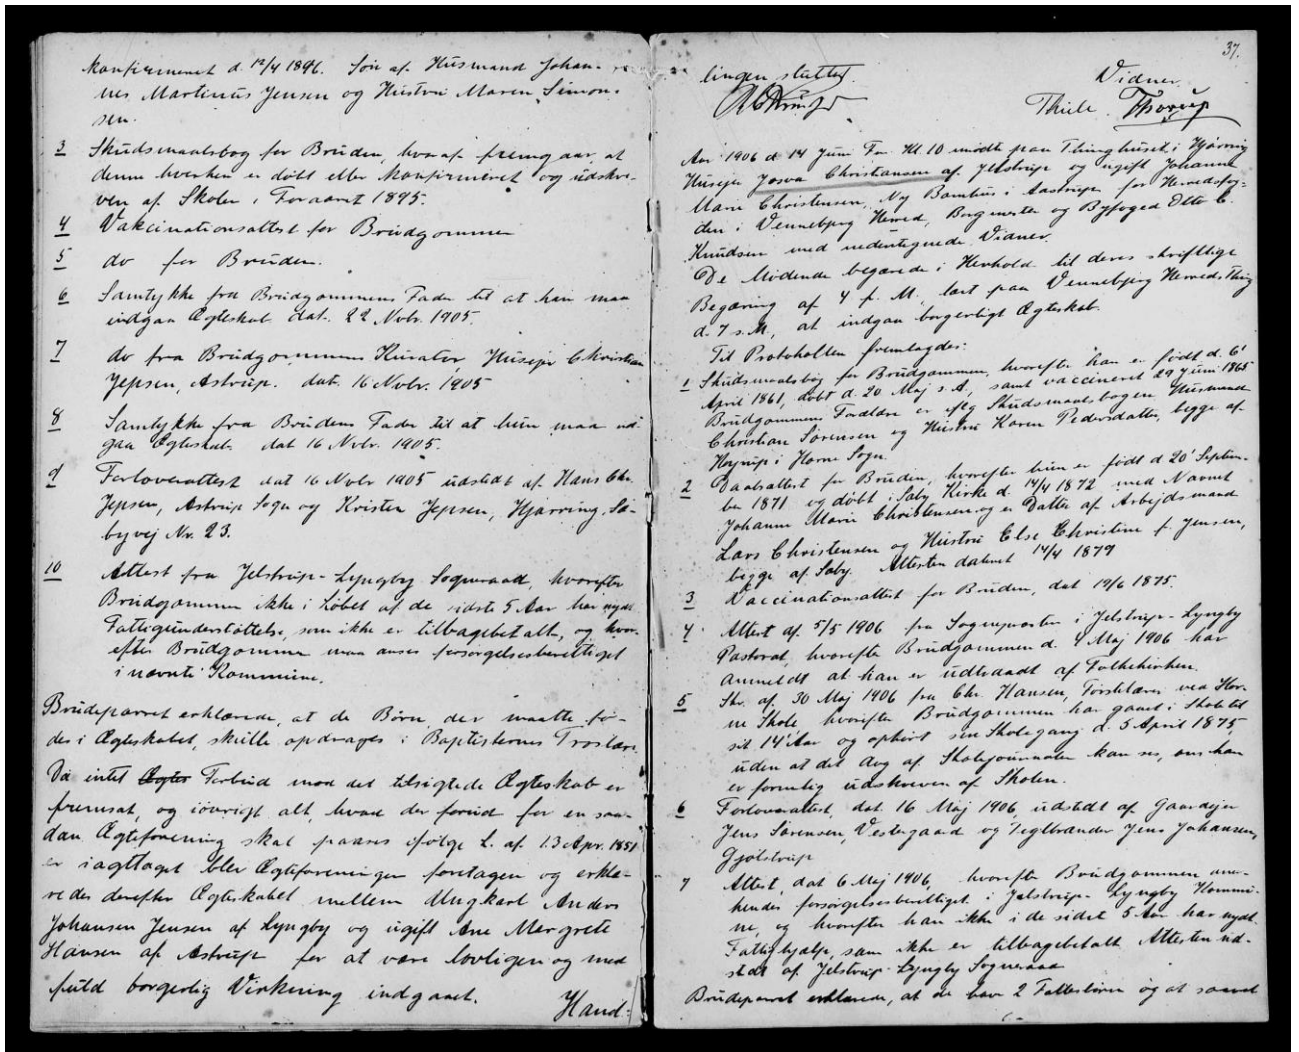 konfirmeret d. 12/4 1896. Søn af Husmand Johan-
nes Martinus Jensen og Hustru Maren Simon-
sen.
3 Skudsmaalsbog for Bruden, hvoraf fremgaar, at
denne hverken er døbt eller konfirmeret og udskre-
ven af Skolen i Foraaret 1895.
4 Vakcinationsattest for Brudgommen
5 do for Bruden.
6 Samtykke fra Brudgommens Fader til at han maa
indgaa Ægteskab dat. 22 Novbr. 1905.
7 do fra Brudgommens Kurator Husejer Christian
Jepsen, Astrup. dat. 16 Novbr. 1905
8 Samtykke fra Brudens Fader til at hun maa ind-
gaa Ægteskab dat 16 Novbr. 1905.
9 Forloverattest dat 16 Novbr 1905 udstedt af Hans Chr.
Jepsen, Astrup Sogn og Kristen Jepsen, Hjørring, Sæ-
byvej Nr. 23.
10 Attest fra Jelstrup-Lyngby Sogneraad, hvorefter
Brudgommen ikke i Løbet af de sidste 5 Aar har nydt
Fattigunderstøttelse, som ikke er tilbagebetalt, og hvor-
efter Brudgommen maa anses forsørgelsesberettiget
i nævnte Kommune.
Brudeparret erklærede, at de Børn, der maatte fø-
des i Ægteskabet, skulle opdrages i Baptisternes Troslære.
Da intet Ægte Forbud mod det tilsigtede Ægteskab er
fremsat, og iøvrigt alt, hvad der forud for en saa-
dan Ægteforening skal paases ifølge L. af 13 Apr. 1851
er iagttaget blev Ægteforeningen foretagen og erklæ-
redes derefter Ægteskabet mellem Ungkarl Anders
Johansen Jensen af Lyngby og ugift Ane Margrete
Hansen af Astrup for at være lovligen og med
fuld borgerlig Virkning indgaaet.
Hand-
37.
lingen sluttet.
Vidner.
Thiele. Thorup
Aar 1906 d 14 Juni Fm. Kl. 10 mødte paa Thinghuset i Hjørring
Husejer Josva Christiansen af Jelstrup og ugift Johanne
Marie Christensen, Ny Bamhus i Aastrup for Herredsfog-
den i Vennebjerg Herred, Borgmester og Byfoged Otto C.
Knudsen med nedentegnede Vidner.
De Mødende begærede i Henhold til deres skriftlige
Begæring af 4 f. M., læst paa Vennebjerg Herreds Thing
d. 7 s. M., at indgaa borgerligt Ægteskab.
Til Protokollen fremlagdes:
1 Skudsmaalsbog for Brudgommen, hvorefter han er født d. 6'
April 1861, døbt d. 20 Maj s. A., samt vaccineret 29 Juni 1865
Brudgommens Forældre er iflg Skudsmaalsbogen Husmand
Christian Sørensen og Hustru Karen Pedersdatter, begge af
Højrup i Horne Sogn.
2 Daabsattest for Bruden, hvorefter hun er født d 20' Septem-
ber 1871 og døbt i Sæby Kirke d. 14/4 1872 med Navnet
Johanne Marie Christensen og er Datter af Arbejdsmand
Lars Christensen og Hustru Else Christine f. Jensen,
begge af Sæby. Attesten dateret 14/4 1879
3 Vaccinationsattest for Bruden, dat 19/6 1875.
4 Attest af 5/5 1906 fra Sognepræsten i Jelstrup-Lyngby
Pastorat, hvorefter Brudgommen d. 4 Maj 1906 har
anmeldt at han er udtraadt af Folkekirken.
5 Skr. af 30 Maj 1906 fra Chr. Hansen, Førstelærer ved Hor-
ne Skole hvorefter Brudgommen har gaaet i Skole til
sit 14' Aar og ophørt sin Skolegang d. 5 April 1875,
uden at det dog af Skolejournalen kan ses, om han
er formelig udskreven af Skolen.
6 Forloverattest, dat. 16 Maj 1906, udstedt af Gaardejer
Jens Sørensen, Vestergaard og Teglbrænder Jens Johansen,
Gjølstrup
7 Attest, dat 6 Maj 1906, hvorefter Brudgommen aner-
kendes forsørgelsesberettiget i Jelstrup-Lyngby Kommu-
ne, og hvorefter han ikke i de sidst 5 Aar har nydt
Fattighjælp, som ikke er tilbagebetalt. Attesten ud-
stedt af Jelstrup-Lyngby Sogneraad
Brudeparret erklærede, at de have 2 Fællesbørn og at saavel